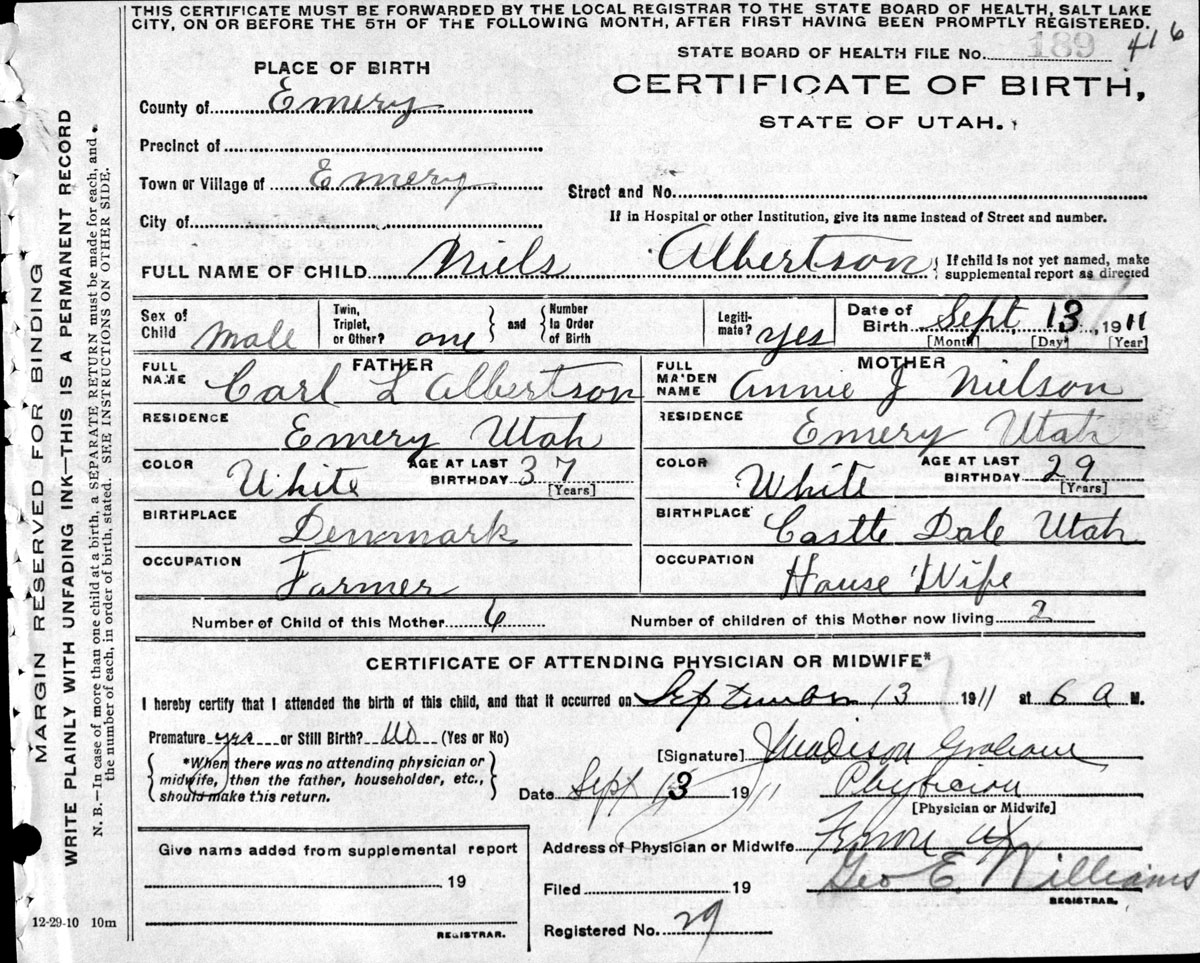 THIS CERTIFICATE MUST BE FORWARDED BY THE LOCAL REGISTRAR TO THE STATE BOARD OF HEALTH, SALT LAKE
CITY, ON OR BEFORE THE 5TH OF THE FOLLOWING MONTH, AFTER FIRST HAVING BEEN PROMPTLY REGISTERED.
STATE BOARD OF HEALTH FILE No. 189 416
PLACE OF BIRTH
CERTIFICATE OF BIRTH,
STATE OF UTAH.
County of Emery
Precinct of
Town or Village of Emery
Street and No.
City of
If in Hospital or other Institution, give its name instead of Street and number.
FULL NAME OF CHILD Niels Albertson
If child is not yet named, make
supplemental report as directed
Sex of
Child Male
Twin,
Triplet,
or Other? one
and
Number
in Order
of Birth
Legiti-
mate? yes
Date of
Birth Sept 13, 1911
[Month] [Day] [Year]
FATHER
FULL
NAME Carl L Albertson
MOTHER
FULL
MAIDEN
NAME Annie J Nielson
RESIDENCE Emery Utah
RESIDENCE Emery Utah
COLOR White
AGE AT LAST
BIRTHDAY 37
[Years]
COLOR White
AGE AT LAST
BIRTHDAY 29
[Years]
BIRTHPLACE Denmark
BIRTHPLACE Castle Dale Utah
OCCUPATION Farmer
OCCUPATION House Wife
Number of Child of this Mother 6
Number of children of this Mother now living 2
CERTIFICATE OF ATTENDING PHYSICIAN OR MIDWIFE*
I hereby certify that I attended the birth of this child, and that it occurred on September 13 1911 at 6 a M.
Premature yes or Still Birth? No (Yes or No)
*When there was no attending physician or
midwife, then the father, householder, etc.,
should make this return.
[Signature] Madison Graham
Date Sept 13 1911
Physician
[Physician or Midwife]
Give name added from supplemental report
19
REGISTRAR.
Address of Physician or Midwife
Filed 19
Geo E. Williams
REGISTRAR.
Registered No. 29
12-29-10 10m
MARGIN RESERVED FOR BINDING
WRITE PLAINLY WITH UNFADING INK—THIS IS A PERMANENT RECORD
N. B.—In case of more than one child at a birth, a SEPARATE RETURN must be made for each, and
the number of each, in order of birth, stated. SEE INSTRUCTIONS ON OTHER SIDE.